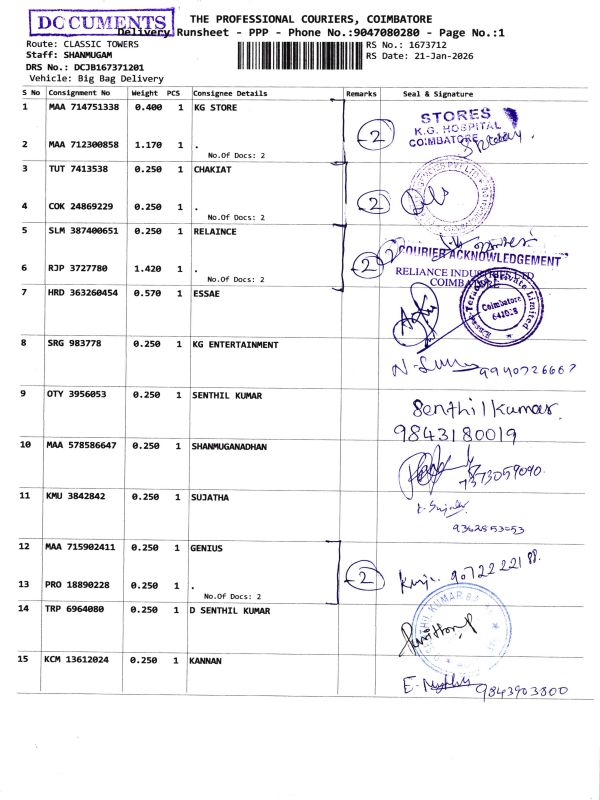 DOCUMENTS
THE PROFESSIONAL COURIERS, COIMBATORE
Delivery Runsheet - PPP - Phone No.:9047080280 - Page No.:1
Route: CLASSIC TOWERS
RS No.: 1673712
Staff: SHANMUGAM
RS Date: 21-Jan-2026
DRS No.: DCJB167371201
Vehicle: Big Bag Delivery
S No Consignment No Weight PCS Consignee Details Remarks Seal & Signature
1 MAA 714751338 0.400 1 KG STORE
STORES
K.G. HOSPITAL
COIMBATORE
2
2 MAA 712300858 1.170 1 .
No.Of Docs: 2
3 TUT 7413538 0.250 1 CHAKIAT
2
4 COK 24869229 0.250 1 .
No.Of Docs: 2
5 SLM 387400651 0.250 1 RELAINCE
COURIER ACKNOWLEDGEMENT
2
6 RJP 3727780 1.420 1 .
No.Of Docs: 2
COIMBATORE
7 HRD 363260454 0.570 1 ESSAE
Coimbatore
8 SRG 983778 0.250 1 KG ENTERTAINMENT
9940726667
9 OTY 3956053 0.250 1 SENTHIL KUMAR
Senthil kumar.
9843180019
10 MAA 578586647 0.250 1 SHANMUGANADHAN
7373059090.
11 KMU 3842842 0.250 1 SUJATHA
12 MAA 715902411 0.250 1 GENIUS
2
13 PRO 18890228 0.250 1 .
No.Of Docs: 2
14 TRP 6964080 0.250 1 D SENTHIL KUMAR
15 KCM 13612024 0.250 1 KANNAN
9843903800